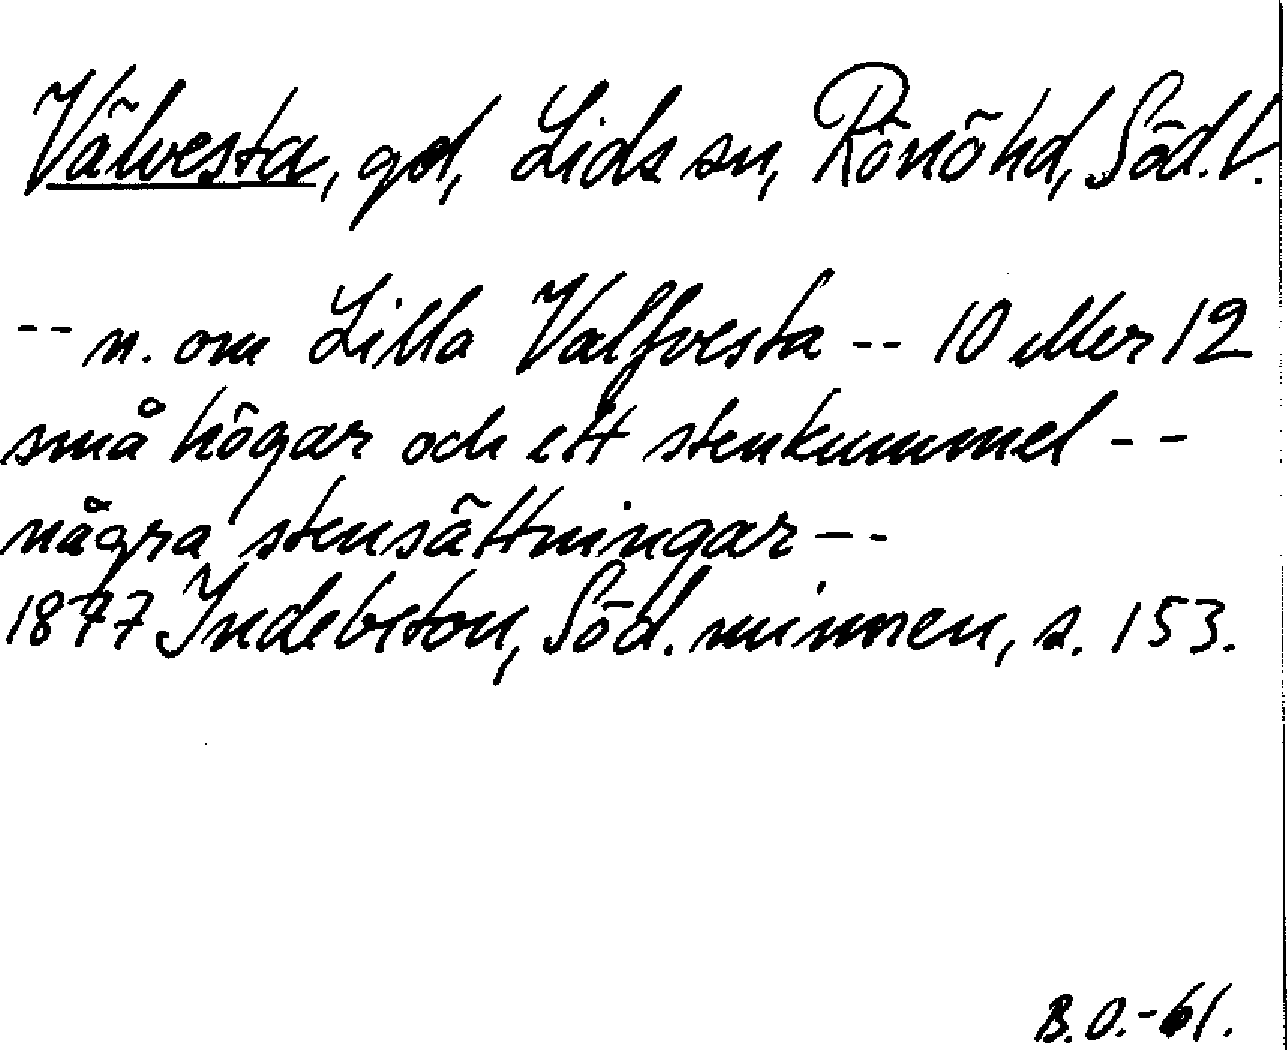 Välvesta, gd, Lids sn, Rönö hd, Söd. l.
-- n. om Lilla Valfvesta -- 10 eller 12
små högar och ett stenkummel --
några stensättningar --
1877 Indebetou, Söd. minnen, s. 153.
B.O.-61.